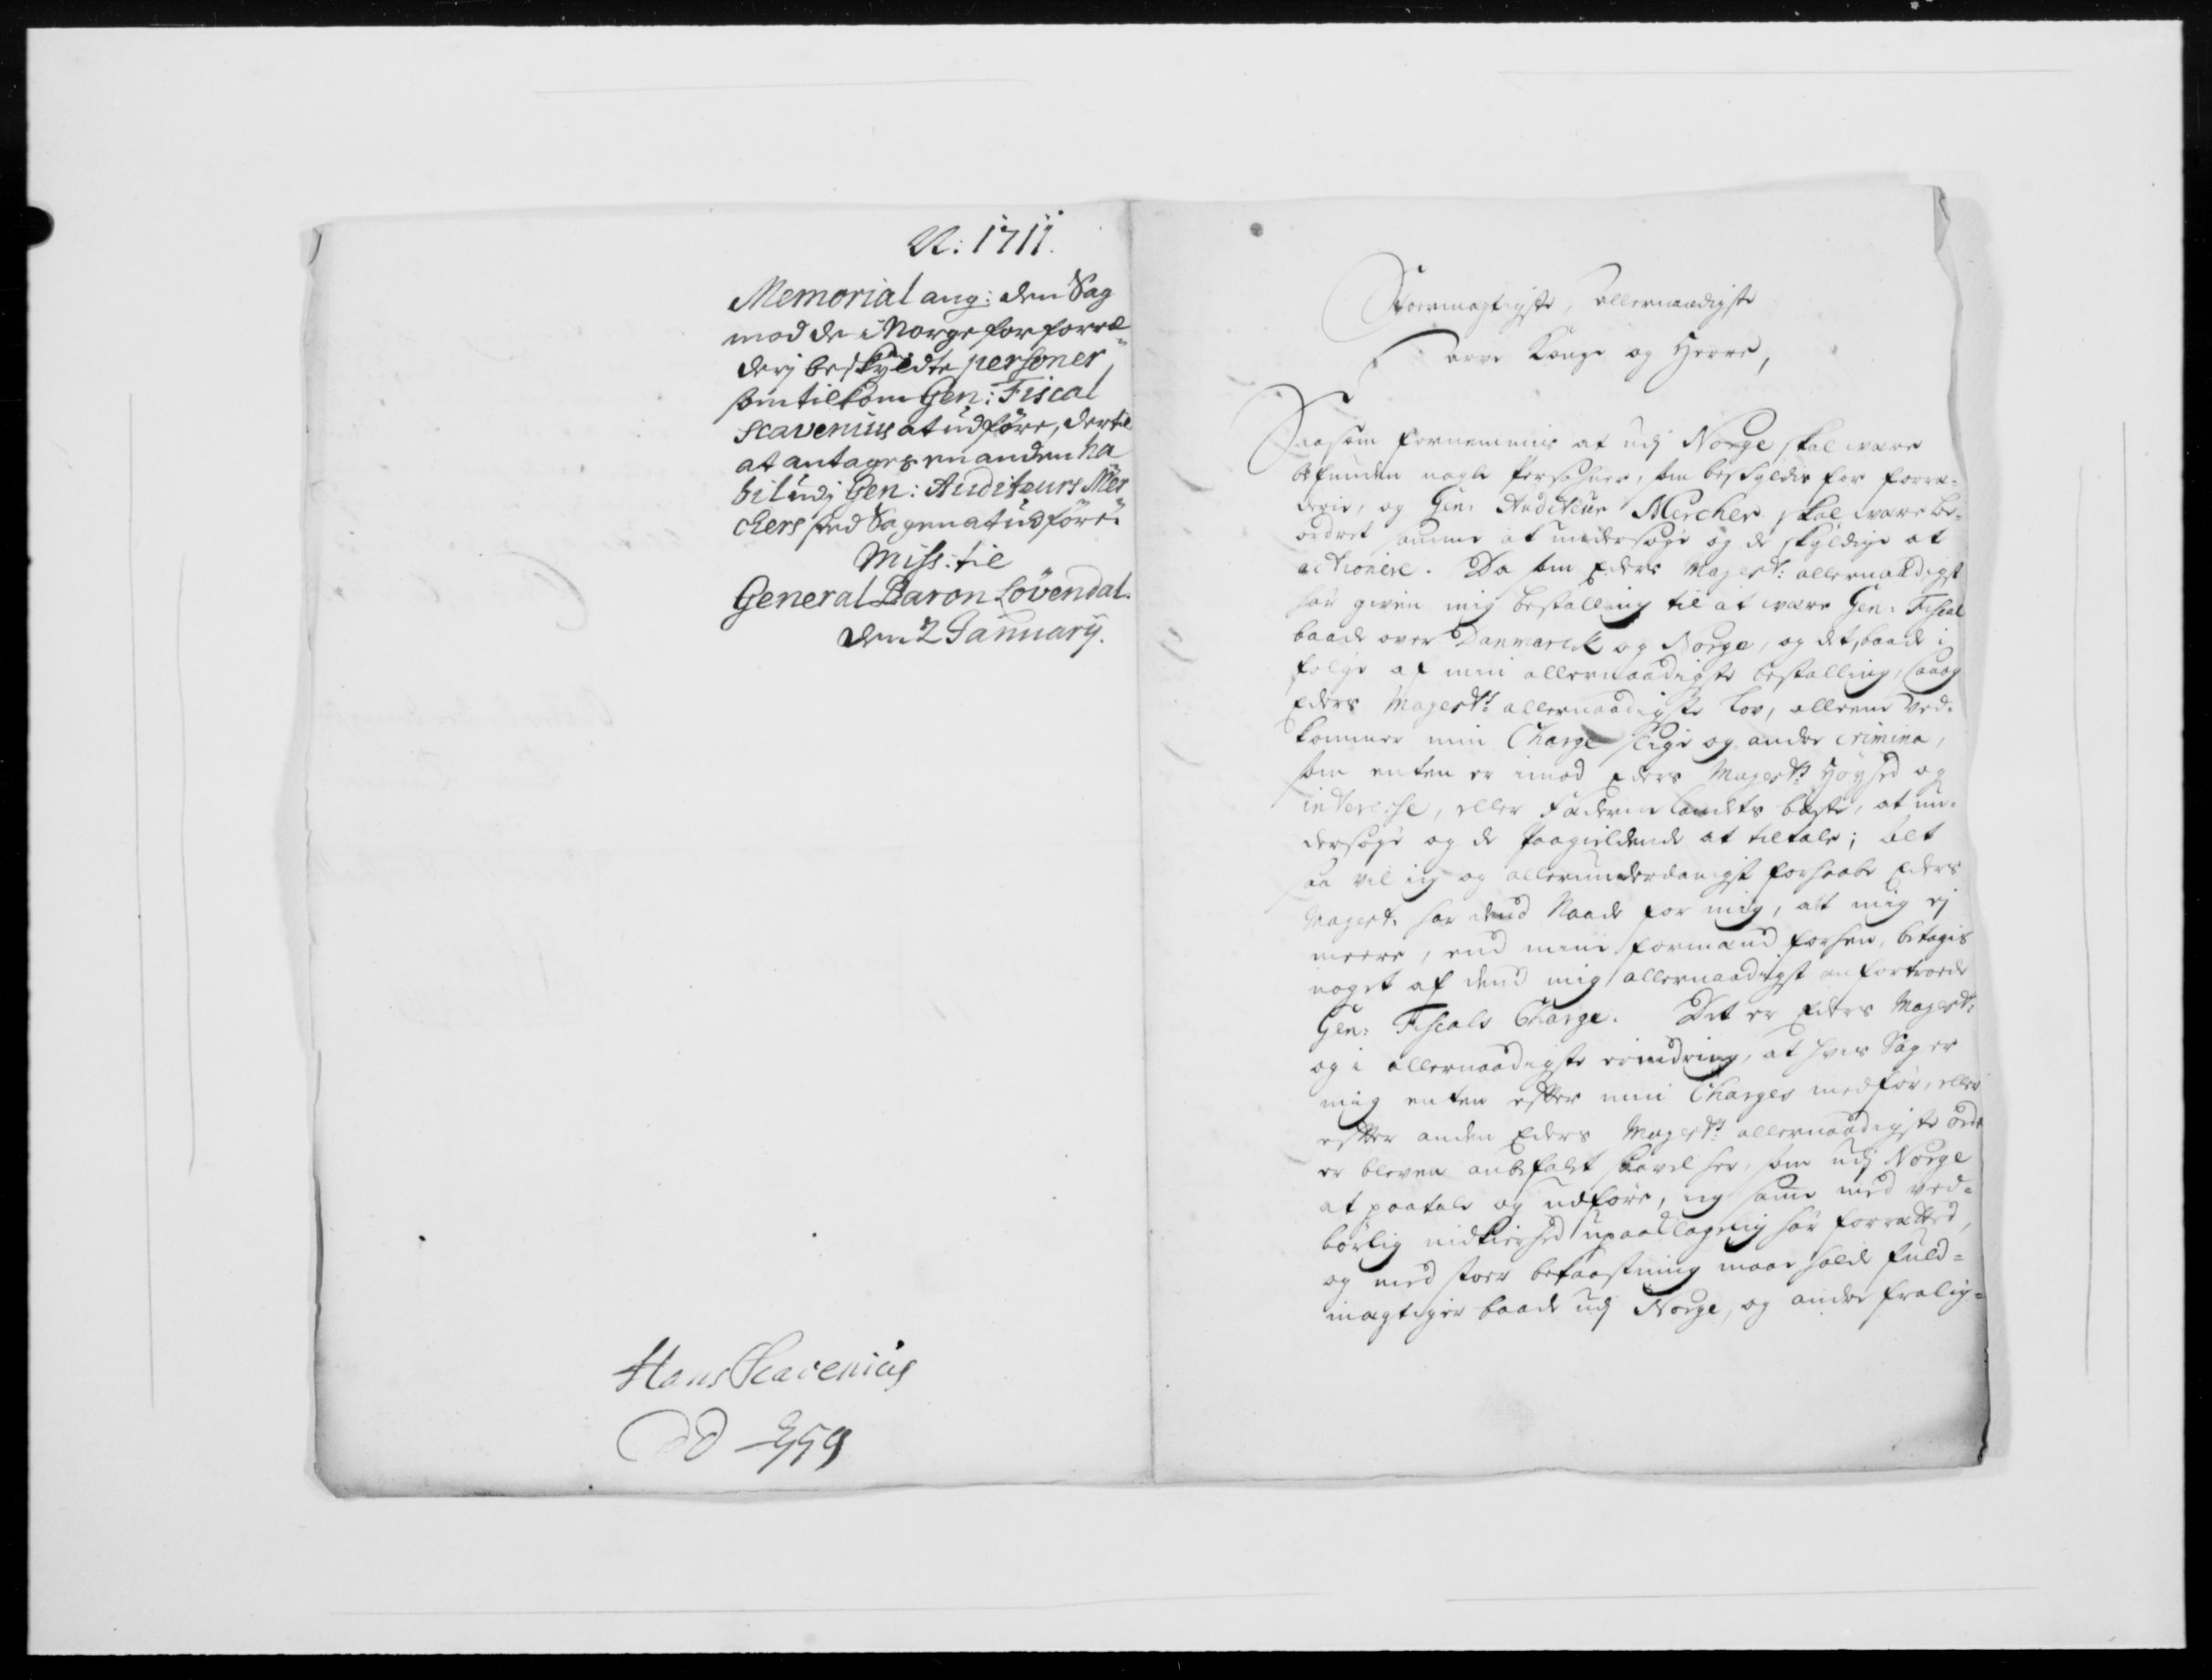 A: 1711.
Memorial ang: den Sag
mod de i Norge for forræ¬
derj beskyldte personer,
som tilkom Gen: Fiscal
Scavenius at udföre, dertil
at antages en anden ha
bil udj Gen: Auditeurs Mer
chers sted Sagen at udföre.
Miss: til
General Baron Lövendal.
den 2 January.
Hans Scavenius
Stoermægtigste, allernaadigste
Arve Konge og Herre,
Saasom fornemmis at udj Norge skal være
befunden nogle Persohner, som beskyldis for forræ-
derie, og Gen: Auditeur Mercher skal være be-
ordret samme at undersøge og de skyldige at
actionere. Da som Eders Mayest: allernaadigst
har given mig bestalling til at være Gen: Fiscal
baade over Danmarck og Norge, og det, baade i
følge af min allernaadigste bestalling, saa og
Eders Mayestt: allernaadigste Lov, alleene ved-
kommer min Charge slige og andre crimina,
som enten er imod Eders Mayestt: Høyhed og
interesse, eller Fædernelandets beste, at un-
dersøge og de paagieldende at tiltale; alt
saa vil jeg og allerunderdanigst forhaabe Eders
Mayest: har dend Naade for mig, at mig ej
meere, end mine formænd forhen, betagis
noget af dend mig allernaadigst anfortroede
Gen: Fiscals Charge. Det er Eders Mayestt:
og i allernaadigste erindring, at hves Sager
mig enten efter min Charges medfør, eller
efter anden Eders Mayestt: allernaadigste ordre
er bleven anbefalet saavel her, som udj Norge
at paatale og udføre, jeg samme med ved-
børlig nidkierhed upaaklagelig har forrettet,
og med stoer bekaastning maae holde fuld-
mægtiger baade udj Norge, og andre fralig-